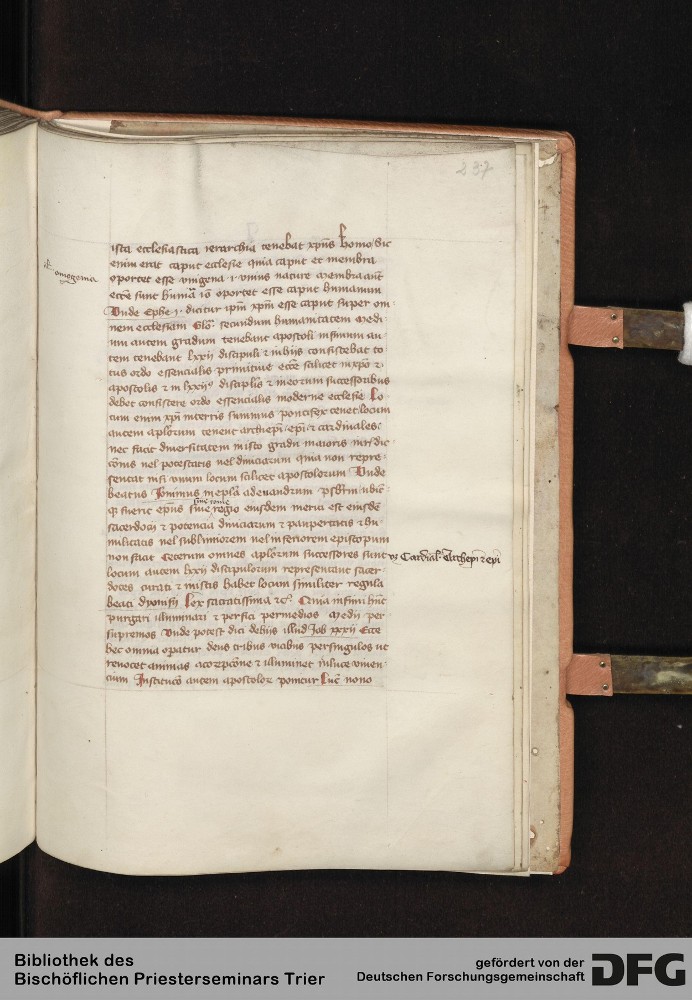 237
ista ecclesiastica ierarchia tenebat xpūs homo Sic
enim erat caput ecclesie quia caput et membra
oportet esse unigena .i. unius nature Membra aut
ecce sunt humāa iō oportet esse caput humanum
Unde Ephe .i. dicitur ipm xpm esse caput super om
nem ecclesiam Glo. secundum humanitatem Medi
um autem gradum tenebant apostoli infimum au
tem tenebant lxxii discipuli & in hiis consistebat to
tus ordo essencialis primitiue ecce scilicet in xpo &
apostolis & in lxxii disciplis & in eorum successoribus
debet consistere ordo essencialis moderne ecclesie Lo
cum enim xpi in terris summus pontifex tenet locum
autem aplorum tenent archiepi epi & cardinales
nec facit diuersitatem in isto gradu maioris iuris dic
cōnis uel potestatis uel diuiciarum quia non repre
sentat nisi unum locum scilicet apostolorum Unde
beatus Ieronimus in epla ad euandrum psbrm
siue rome
qi fuerit epus siue regio eiusdem meriti est eiusdē
sacerdocii & potencia diuiciarum & paupertatis & hu
militatis uel sublimiorem uel inferiorem episcopum
non facit Ceterum omnes aplorum successores sunt
Cardīal. Archiepi & epi
locum autem lxxii discipulorum representant sacer
dotes curati & in istis habet locum similiter regula
beati dyonisii Lex sacratissima &c. Quia infimi hnt
purgari illuminari & perfici per medios Medii per
supremos Unde potest dici de hiis illud Job xxxiii Ecce
hec omnia operatur deus tribus uicibus per singulos ut
reuocet animas a corrupcōne & illuminet in luce uiuen
cium Institucō autem apostolor ponitur Luc nono
omogenia
Bibliothek des
Bischöflichen Priesterseminars Trier
gefördert von der
Deutschen Forschungsgemeinschaft
DFG